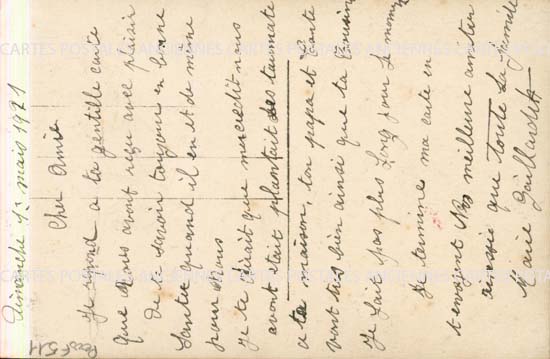 Dimanche 1r mais 1921
Cher Amie
Je repond a ta gentille carte
que nous avont reçu avec plaisir
de te savoir toujour en bonne
santée quand il en et de meme
pour nous
je te dirait que mercredit nous
avont etait plantait des
a ta maison, ton papa et toute
vont très bien ainsi que ta Cousine
Je fait pas plus long pour le moment
Je termine ma carte en
t envoyent Nos meilleure amitier
ainssie que toute la famille
Marie
CARTES POSTALES ANCIENNES